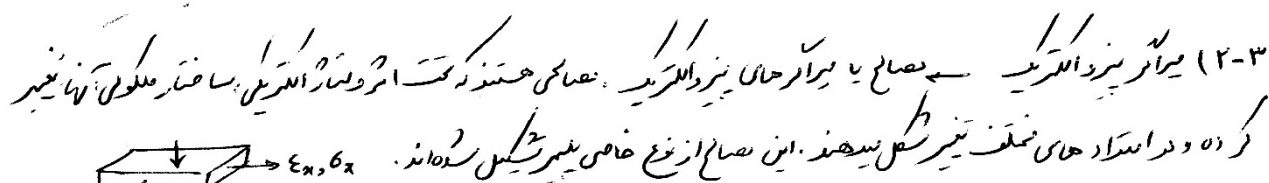 ۲-۳) میراگر پیزوالکتریک ← مصالح یا میراگرهای پیزوالکتریک، مصالحی هستند که تحت اثر ولتاژ الکتریکی، ساختار ملکولی آنها تغییر
کرده و در امتدادهای مختلف تغییر شکل میدهند. این مصالح از نوع خاصی پلیمر تشکیل شده‌اند.
εx, σx